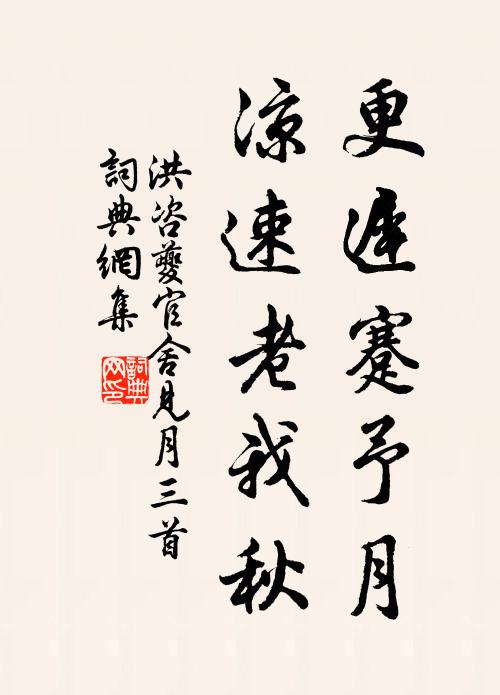 更遲蹇予月
涼速老我秋
洪咨夔官舍見月三首
詞典網集
詞典网印